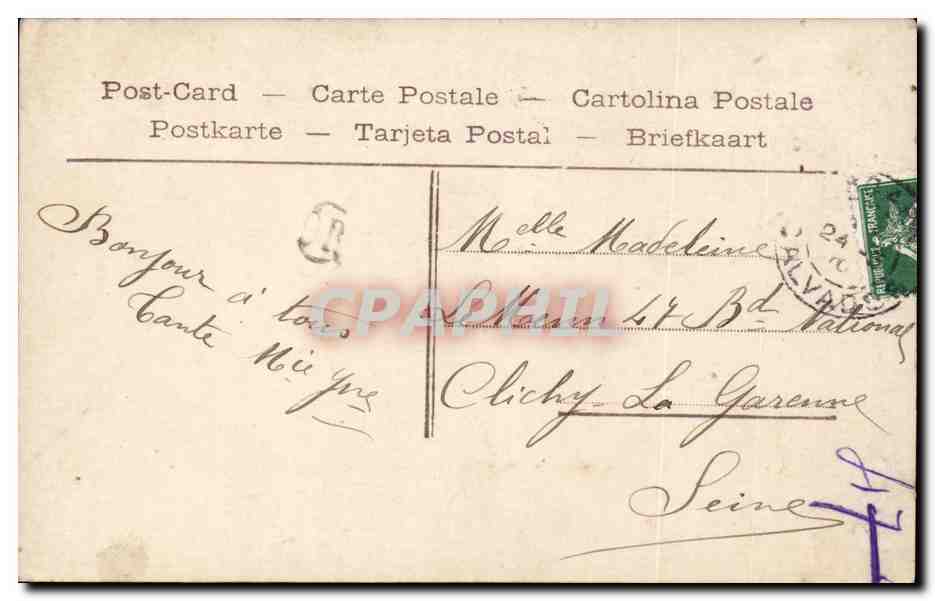 Post-Card — Carte Postale — Cartolina Postale
Postkarte — Tarjeta Postal — Briefkaart
Bonjour à tous
Tante Mie Yve
BR
CPARHIL
Melle Madeleine
47 Bd National
Clichy-La Garenne
Seine
24
CALVADOS
REPUBLIQUE FRANÇAISE